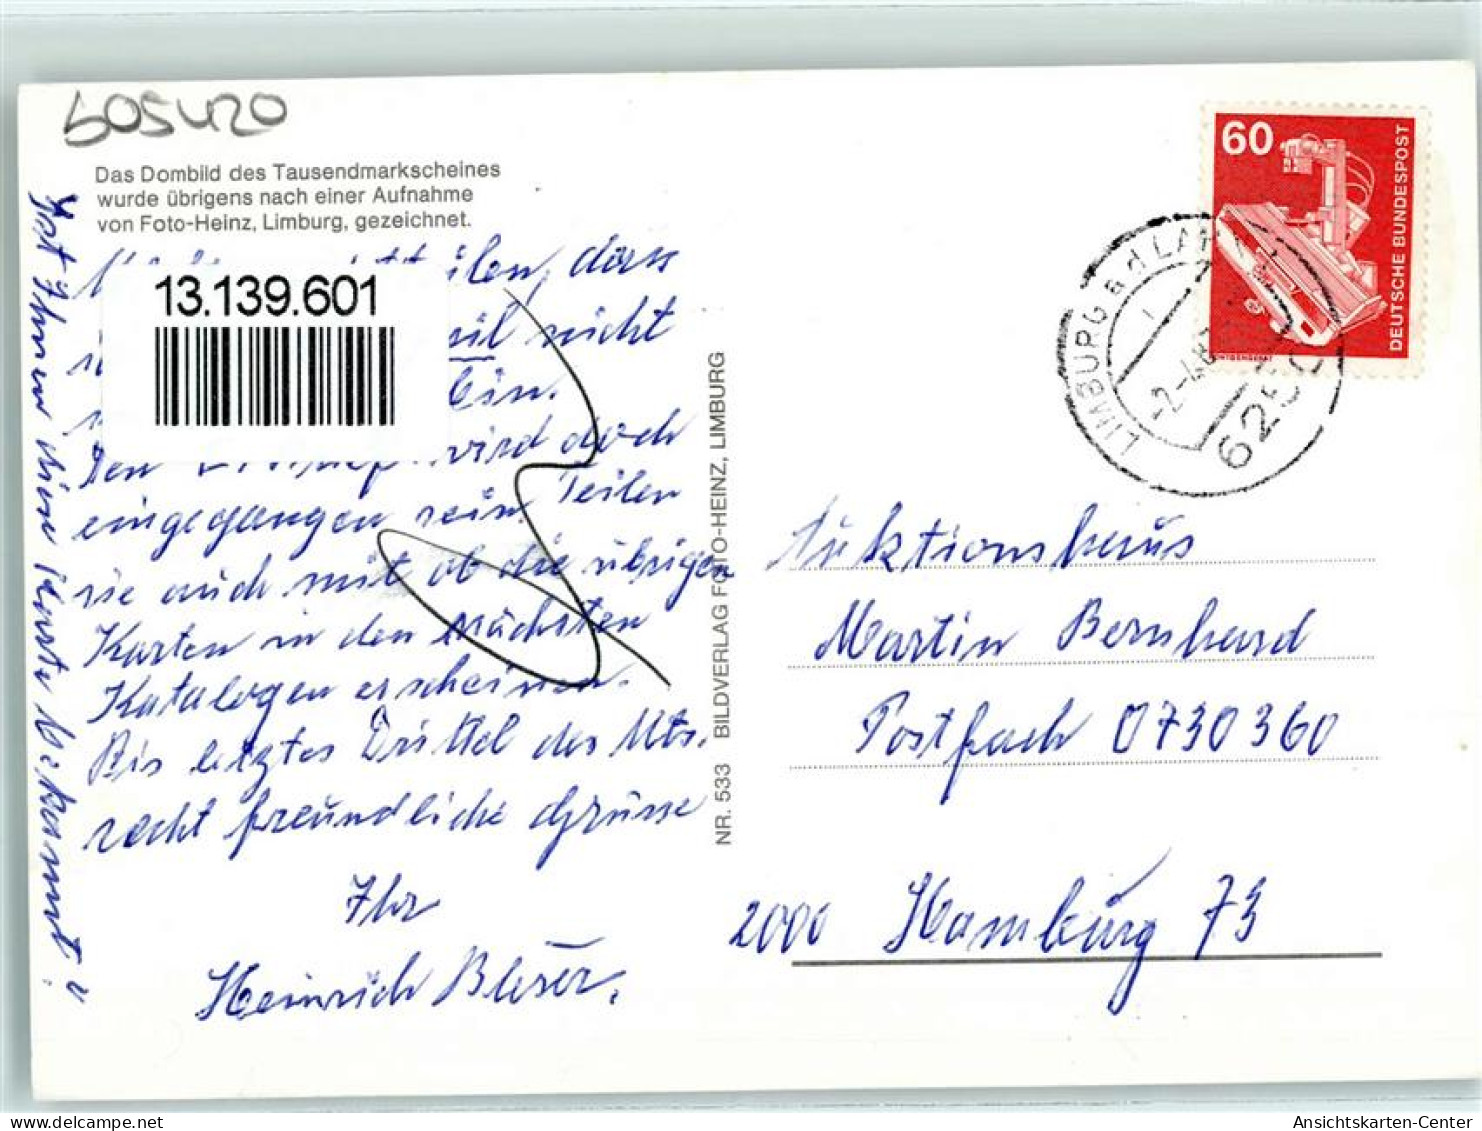 505420
Das Dombild des Tausendmarkscheines
wurde übrigens nach einer Aufnahme
von Foto-Heinz, Limburg, gezeichnet.
dass
13.139.601
nicht
bin.
wird doch
eingegangen sein. Teilen
sie auch mit ob die übrigen
Karten in den nächsten
Katalogen erscheinen.
Bis letztes Drittel des Mts.
recht freundliche Grüsse
Ihr
Heinrich Bleser.
Ist Ihnen diese Karte bekannt?
NR. 533 BILDVERLAG FOTO-HEINZ, LIMBURG
60
DEUTSCHE BUNDESPOST
LIMBURG a d LAHN
6250
Auktionshaus
Martin Bernhard
Postfach 0730360
2000 Hamburg 73
Ansichtskarten-Center